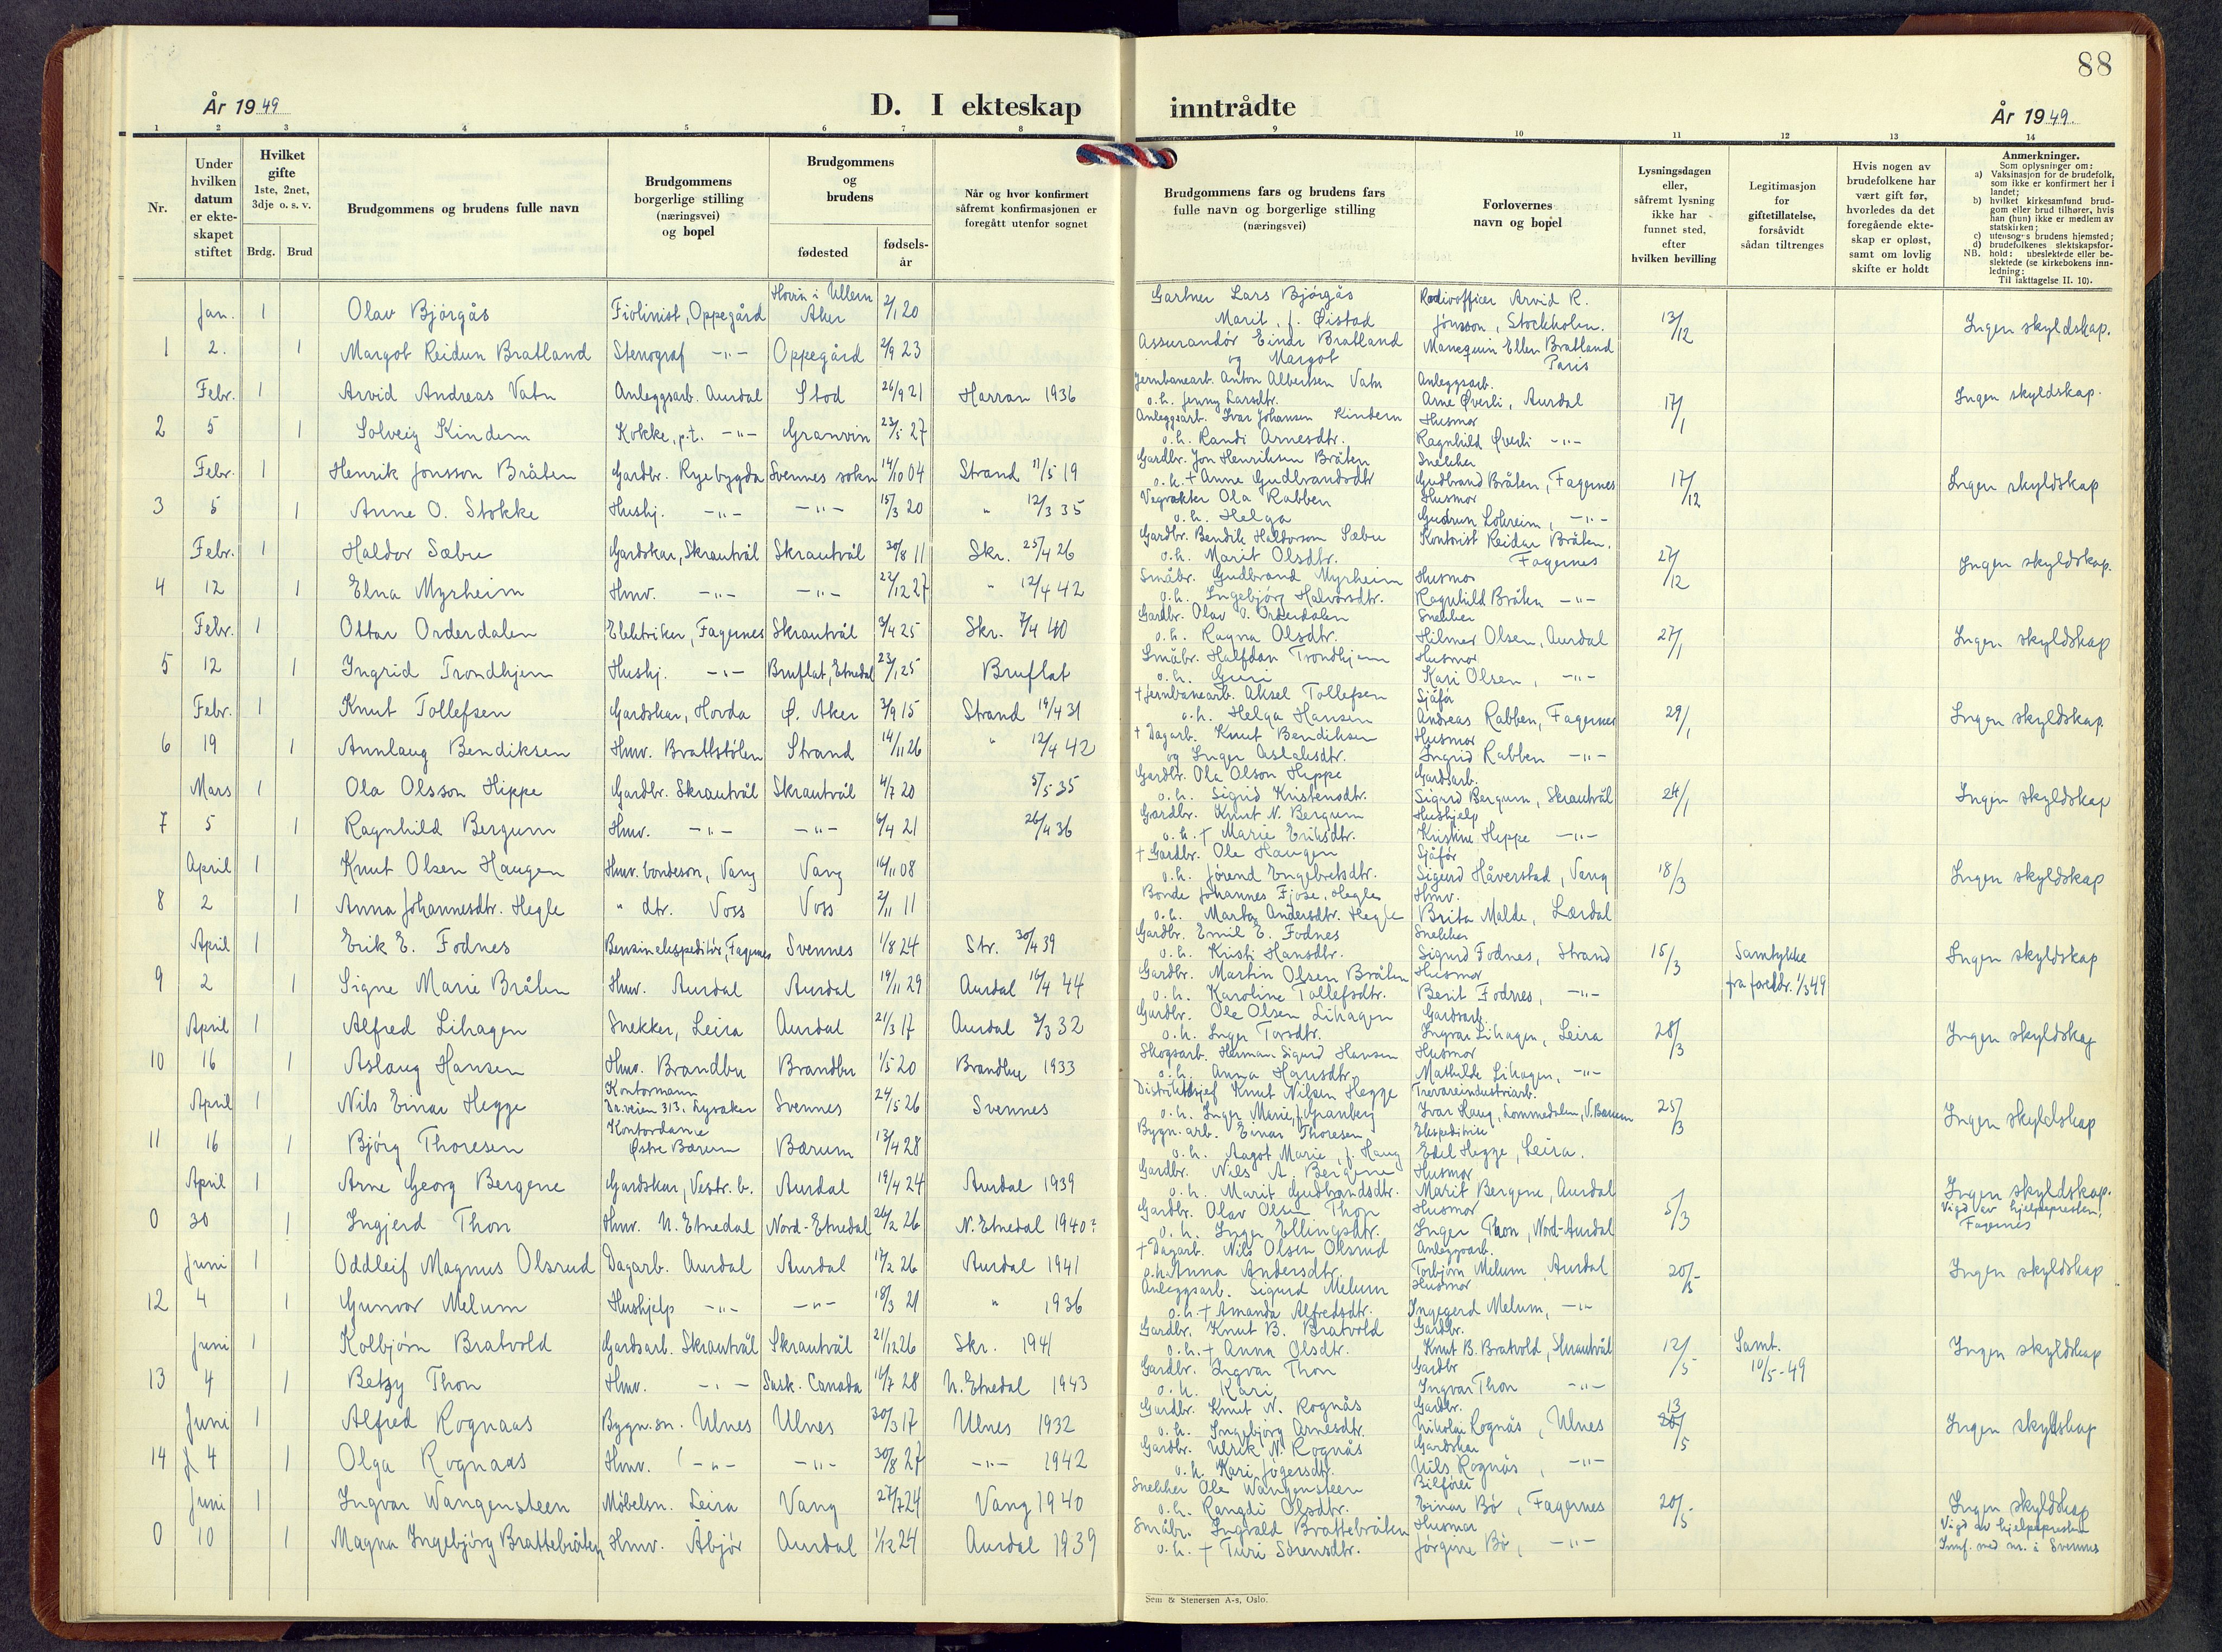 88
År 1949
D. I ekteskap inntrådte
År 1949.
1 2 3 4 5 6 7 8 9 10 11 12 13 14
Nr.
Under hvilken datum er ekteskapet stiftet
Hvilket gifte 1ste, 2net, 3dje o. s. v.
Brdg. Brud
Brudgommens og brudens fulle navn
Brudgommens borgerlige stilling (næringsvei) og bopel
Brudgommens og brudens
fødested
fødselsår
Når og hvor konfirmert såfremt konfirmasjonen er foregått utenfor sognet
Brudgommens fars og brudens fars fulle navn og borgerlige stilling (næringsvei)
Forlovernes navn og bopel
Lysningsdagen eller, såfremt lysning ikke har funnet sted, efter hvilken bevilling
Legitimasjon for giftetillatelse, forsåvidt sådan tiltrenges
Hvis nogen av brudefolkene har vært gift før, hvorledes da det foregående ekteskap er opløst, samt om lovlig skifte er holdt
Anmerkninger.
Som oplysninger om:
a) Vaksinasjon for de brudefolk, som ikke er konfirmert her i landet;
b) hvilket kirkesamfund brudgom eller brud tilhører, hvis han (hun) ikke er medlem av statskirken;
c) utensogns brudens hjemsted;
d) brudefolkenes slektskapsforhold: ubeslektede eller beslektede (se kirkebokens innledning:
NB.
Til iakttagelse II. 10).
Jan. 1 Olav Bjørgås Fiolinist, Oppegård Hovin i Ullern Aker 2/1 20 Gartner Lars Bjørgås Marit, f. Øistad Radioofficer Arvid R. Jónsson, Stockholm. 13/12 Ingen skyldskap.
1 2. 1 Margot Reidun Bratland Stenograf -"- Oppegård 2/9 23 Assurandør Einar Bratland og Margot Manequin Ellen Bratland Paris
Febr. 1 Arvid Andreas Vatn Anleggsarb. Aurdal Stod 26/9 21 Harran 1936 Jernbanearb. Anton Albertsen Vatn o.h. Jenny Larsdtr. Anleggsarb. Arne Øverli, Aurdal 17/1 Ingen skyldskap.
2 5 1 Solveig Kindem Kokke, p.t. -"- Granvin 23/5 27 Anleggsarb. Ivar Johansen Kindem o.h. Randi Arnesdtr. Husmor Ragnhild Øverli -"-
Febr. 1 Henrik Jonsson Bråten Gardbr. Ryebygda Svennes sokn 14/10 04 Strand 11/5 19 Gardbr. Jon Henriksen Bråten o.h. + Anne Gudbrandsdtr Snekker Gudbrand Bråten, Fagernes 17/12 Ingen skyldskap
3 5 1 Anne O. Stokke Hushj. -"- -"- 15/3 20 " 12/3 35 Vegvakter Ola Rabben o.h. Helga Husmor Gudrun Lohreim, -"-
Febr. 1 Haldor Sæbu Gardskar, Skrautvål Skrautvål 30/8 11 Skr. 25/4 26 Gardbr. Bendik Haldorson Sæbu o.h. Marit Olsdtr. Kontorist Reidar Bråten, Fagernes 27/12 Ingen skyldskap.
4 12 1 Elna Myrheim Hmv. -"- -"- 22/12 27 " 12/4 42 Småbr. Gudbrand Myrheim o.h. Ingebjørg Halvorsdtr. Husmor Ragnhild Bråten -"-
Febr. 1 Ottar Orderdalen Elektriker, Fagernes Skrautvål 3/4 25 Skr. 7/4 40 Gardbr. Olav O. Orderdalen o.h. Ragna Olsdtr. Snekker Hilmer Olsen, Aurdal 27/1 Ingen skyldskap
5 12 1 Ingrid Trondhjem Hushj. -"- Bruflat, Etnedal 23/1 25 Bruflat Småbr. Halfdan Trondhjem o.h. Guri Husmor Kari Olsen, -"-
Febr. 1 Knut Tollefsen Gardskar, Hovda Ø. Aker 3/9 15 Strand 19/4 31 + Jernbanearb. Aksel Tollefsen o.h. Helga Hansen Sjåfør Andreas Rabben, Fagernes 29/1 Ingen skyldskap.
6 19 1 Annlaug Bendiksen Hmv. Brattstølen Strand 14/11 26 " 12/4 42 + Dagarb. Knut Bendiksen og Inger Aslaksdtr. Husmor Ingrid Rabben -"-
Mars 1 Ola Olsson Hippe Gardbr. Skrautvål Skrautvål 4/7 20 5/5 35 Gardbr. Ola Olson Hippe o.h. Sigrid Kristensdtr. Gardsarb. Sigurd Bergum, Skrautvål 24/1 Ingen skyldskap
7 5 1 Ragnhild Bergum Hmv. -"- -"- 6/4 21 26/4 36 Gardbr. Knut N. Bergum o.h. + Marie Eriksdtr. Hushjelp Kristine Hippe -"-
April 1 Knut Olsen Haugen Hmv. bondeson, Vang Vang 16/11 08 + Gardbr. Ole Haugen o.h. Jørend Engebretsdtr. Sjåfør Sigurd Håverstad, Vang 18/3 Ingen skyldskap
8 2 1 Anna Johannesdtr. Hegle " dtr. Voss Voss 2/11 11 Bonde Johannes Fjose, Hegle o.h. Marta Andersdtr. Hegle Hmv. Brita Malde, Lærdal
April 1 Erik E. Fodnes Benzinekspeditør, Fagernes Svennes 1/8 24 Str. 30/4 39 Gardbr. Emil E. Fodnes o.h. Kristi Hansdtr. Snekker Sigurd Fodnes, Strand 15/3 Samtykke fra foreldr. 1/3 49 Ingen skyldskap
9 2 1 Signe Marie Bråten Hmv. Aurdal Aurdal 19/11 29 Aurdal 16/4 44 Gardbr. Martin Olsen Bråten o.h. Karoline Tollefsdtr. Husmor Berit Fodnes, -"-
April 1 Alfred Lihagen Snekker, Leira Aurdal 21/3 17 Aurdal 2/3 32 Gardbr. Ole Olsen Lihagen o.h. Inger Torsdtr. Gardsarb. Ingvar Lihagen, Leira 28/3 Ingen skyldskap
10 16 1 Aslaug Hansen Hmv. Brandbu Brandbu 1/5 20 Brandbu 1933 Skogsarb. Herman Sigurd Hansen o.h. Anna Hansdtr. Husmor Mathilde Lihagen, -"-
April 1 Nils Einar Hegge Kontormann Dr.veien 313, Lysaker Svennes 24/5 26 Svennes Distriktssjef Knut Nilsen Hegge o.h. Inger Marie, f. Granberg Trevareindustriarb. Ivar Haug, Lommedalen, V. Bærum 25/3 Ingen skyldskap
11 16 1 Bjørg Thoresen Kontordame Østre Bærum Bærum 13/4 28 Bygn.arb. Einar Thoresen o.h. Aagot Marie, f. Haug Ekspeditrise Edel Hegge, Leira.
April 1 Arne Georg Bergene Gardskar, Vestr. b. Aurdal 19/4 24 Aurdal 1939 Gardbr. Nils A. Bergene o.h. Marit Gudbrandsdtr. Husmor Marit Bergene, Aurdal 5/3 Ingen skyldskap. Vigd av hjelpepresten, Fagernes
0 30 1 Ingjerd Thon Hmv. N. Etnedal Nord-Etnedal 26/2 26 N. Etnedal 1940? Gardbr. Olav Olsen Thon o.h. Inger Ellingsdtr. Husmor Inger Thon, Nord-Aurdal
Juni 1 Oddleif Magnus Olsrud Dagarb. Aurdal Aurdal 17/2 26 Aurdal 1941 + Dagarb. Nils Olsen Olsrud o.h. Anna Andersdtr. Anleggsarb. Torbjørn Melum, Aurdal 20/5 Ingen skyldskap
12 4 1 Gunvor Melum Hushjelp -"- -"- 18/3 21 " 1936 Anleggsarb. Sigurd Melum o.h. + Amanda Alfredsdtr. Husmor Ingegerd Melum, -"-
Juni 1 Kolbjørn Bratvold Gardsarb. Skrautvål Skrautvål 21/12 26 Skr. 1941 Gardbr. Knut B. Bratvold o.h. + Anna Olsdtr. Gardbr. Knut B. Bratvold, Skrautvål 12/5 Samt. 10/5-49 Ingen skyldskap
13 4 1 Betzy Thon Hmv. -"- Sask. Canada 16/7 28 N. Etnedal 1943 Gardbr. Ingvar Thon o.h. Kari Gardbr Ingvar Thon -"-
Juni 1 Alfred Rognaas Bygn.sn. Ulnes Ulnes 30/3 17 Ulnes 1932 Gardbr. Knut N. Rognås o.h. Ingebjørg Arnesdtr. Gardbr. Nikolai Rognås, Ulnes 13/5 Ingen skyldskap
14 4 1 Olga Rognaas Hmv. -"- -"- 30/8 27 -"- 1942 Gardbr. Ulrik N. Rognås o.h. Kari Jøgersdtr. Gardskar Nils Rognås, -"-
Juni 1 Ingvar Wangensteen Møbelsn. Leira Vang 27/7 24 Vang 1940 Snekker Ole Wangensteen o.h. Rangdi Olsdtr. Bilfører Einar Bø, Fagernes 20/5 Ingen skyldskap Vigd av hjelpepresten Innf. med nr. i Svennes
0 10 1 Magna Ingebjørg Brattebråten Hmv. Åbjør Aurdal 1/12 24 Aurdal 1939 Småbr. Ingvald Brattebråten o.h. + Turi Sørensdtr. Husmor Jørgine Bø, -"-
Sem & Stenersen A-s, Oslo.